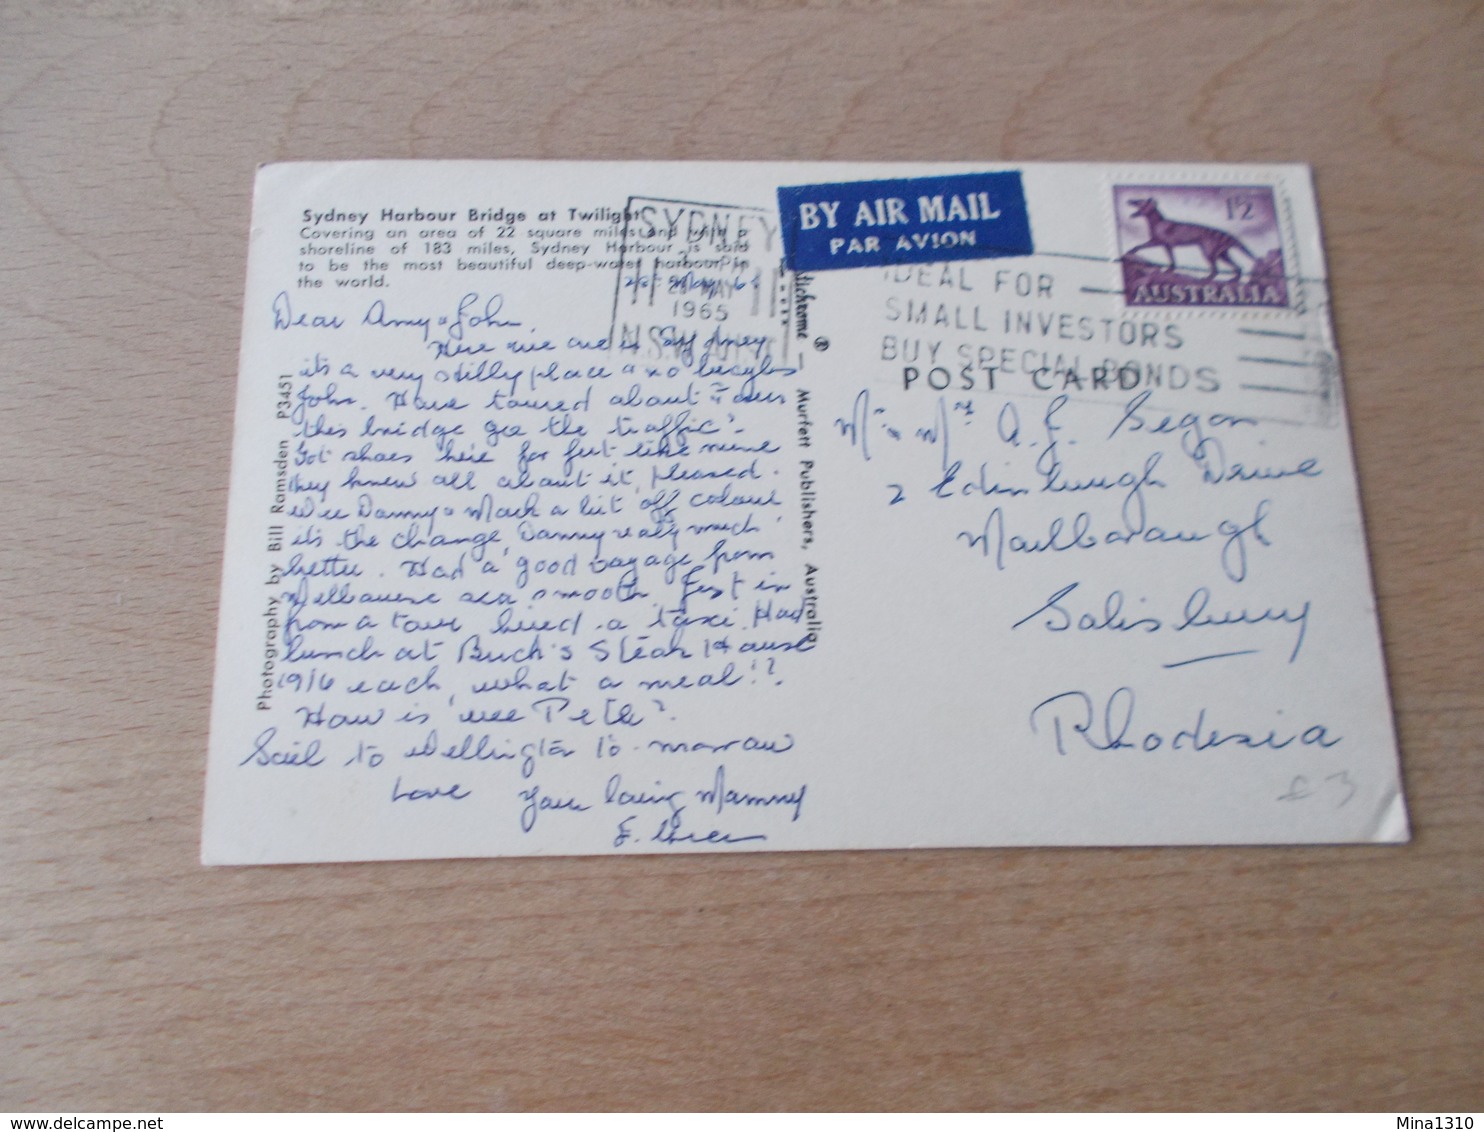 Sydney Harbour Bridge at Twilight
Covering an area of 22 square miles and with a
shoreline of 183 miles, Sydney Harbour is said
to be the most beautiful deep-water harbour in
the world.
Dear Amy & John,
Here we are in Sydney
it's a very hilly place & no
John. Have toured about &
this bridge gee the traffic.
Got shoes here for feet like mine
they knew all about it, pleased.
Wee Danny & Mark a bit off colour
it's the change, Danny really much
better. Had a good voyage from
Melbourne sea smooth. Just in
from a tour hired a taxi. Had
lunch at Buck's Steak House
19/6 each, what a meal!!
How is wee Pete?
Sail to Wellington to-morrow
Love Your loving Mammy
Photography by Bill Ramsden P3451
Murfett Publishers, Australia
SYDNEY
MAY
1965
N.S.W. AUST
BY AIR MAIL
PAR AVION
1/2
AUSTRALIA
IDEAL FOR
SMALL INVESTORS
BUY SPECIAL BONDS
POST CARD
Mr & Mrs A. J. Segar
2 Edinburgh Drive
Marlborough
Salisbury
Rhodesia
£3
Mina1310